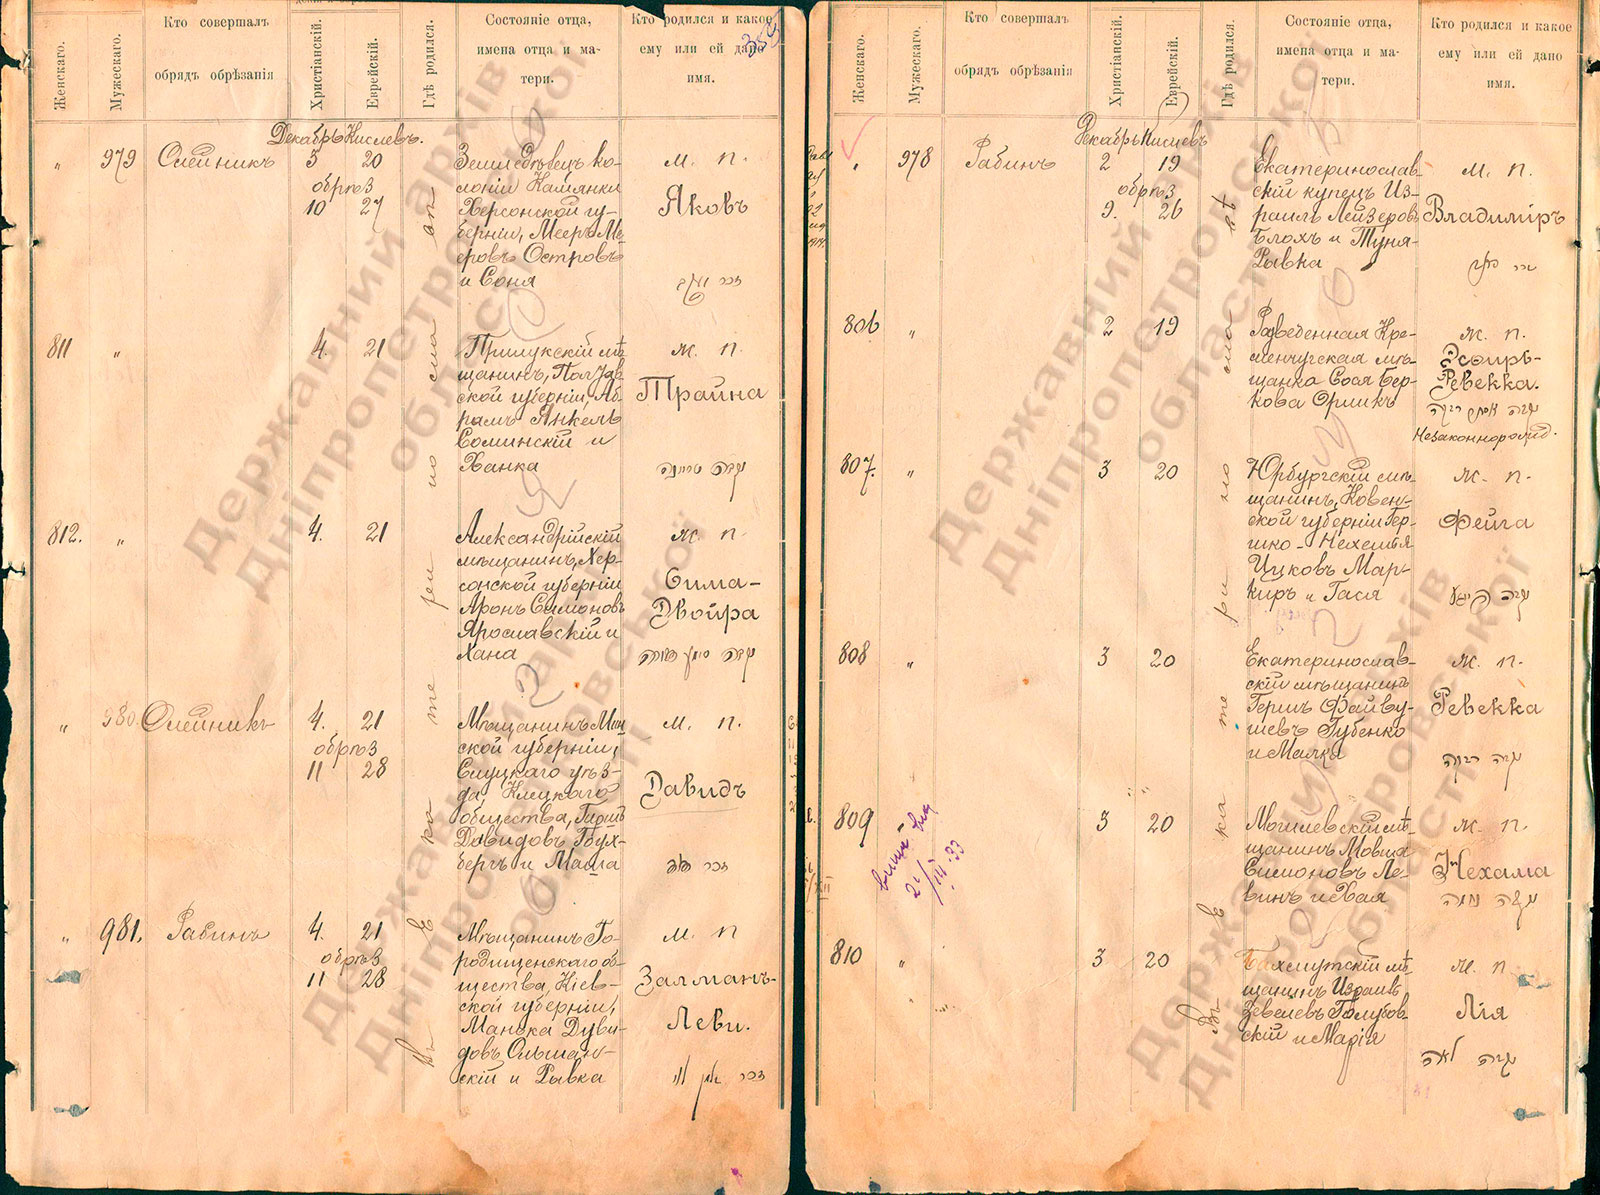 Женскаго.
Мужескаго.
Кто совершалъ
обрядъ обрѣзанія
Христіанскій.
Еврейскій.
Гдѣ родился.
Состояніе отца,
имена отца и ма-
тери.
Кто родился и какое
ему или ей дано
имя.
Декабрь Кислевъ.
" 979 Олейникъ 3 20
обрѣз
10 27
Земледѣлецъ ко-
лоніи Камянки
Херсонской гу-
берніи, Мееръ Ме-
еровъ Островъ
и Соня
м. п.
Яковъ
זכר יעקב
811 " 4. 21
Прилукскій мѣ-
щанинъ, Полтав-
ской губерніи, Аб-
рамъ Янкель
Соминскій и
Ханка
ж. п.
Трайна
נקבה טריינה
812. " 4. 21
Александрійскій
мѣщанинъ, Хер-
сонской губерніи
Аронъ Симоновъ
Ярославскій и
Хана
ж. п.
Сима-
Двойра
נקבה סימע דווירה
" 980. Олейникъ 4. 21
обрѣз
11 28
Мѣщанинъ Мин-
ской губерніи,
Слуцкаго уѣз-
да, Клецкаго
общества, Гиршъ
Давидовъ
и Маша
м. п.
Давидъ
זכר דוד
" 981. Рабинъ 4. 21
обрѣз
11 28
Мѣщанинъ Го-
родищенскаго об-
щества, Кіев-
ской губерніи,
Манска Дуви-
довъ Ольшан-
скій и Рывка
м. п
Залманъ-
Леви.
זכר זלמן לוי
Въ Екатеринославѣ
Женскаго.
Мужескаго.
Кто совершалъ
обрядъ обрѣзанія
Христіанскій.
Еврейскій.
Гдѣ родился.
Состояніе отца,
имена отца и ма-
тери.
Кто родился и какое
ему или ей дано
имя.
Декабрь Кислевъ
" 978 Рабинъ 2 19
обрѣз
9. 26
Екатеринослав-
скій купецъ Из-
раиль Лейзеровъ
Блохъ и Туня-
Рывка
м. п.
Владиміръ
זכר
806 " 2 19
Разведенная Кре-
менчугская мѣ-
щанка Сося Бер-
кова Орликъ
ж. п.
Эсѳирь-
Ревекка.
נקבה אסתר ריווקה
Незаконнорожд.
807. " 3 20
Юрбургскій мѣ-
щанинъ, Ковен-
ской губерніи Гер-
шко-Нехемья
Ицковъ Мар-
киръ и Гася
ж. п.
Фейга
נקבה פייגע
808 " 3 20
Екатеринослав-
скій мѣщанинъ
Гершъ Файву-
шевъ Губенко
и Малка
ж. п.
Ревекка
נקבה ריווקה
809 3 20
Могилевскій мѣ-
щанинъ Мовша
Симоновъ Ле-
винъ и Хая
ж. п
Нехама
נקבה נחמה
810 " 3 20
Бахмутскій мѣ-
щанинъ Израиль
Зевелевъ Голубов-
скій и Марія
ж. п
Лія
נקבה לאה
Въ Екатеринославѣ
Державний архів
Дніпропетровської
області